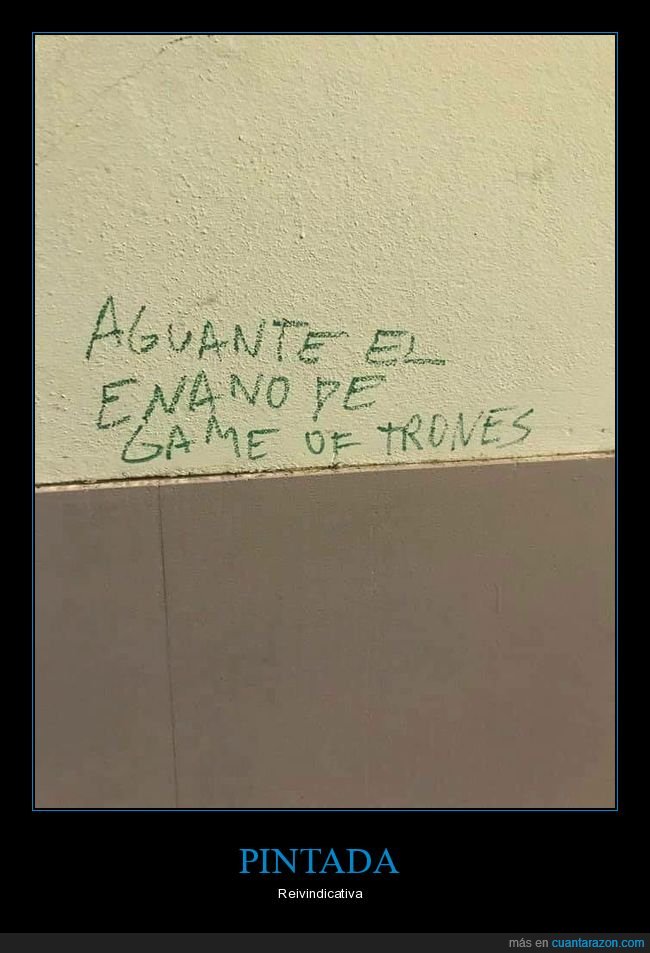 AGUANTE EL
ENANO DE
GAME OF TRONES
PINTADA
Reivindicativa
más en cuantarazon.com